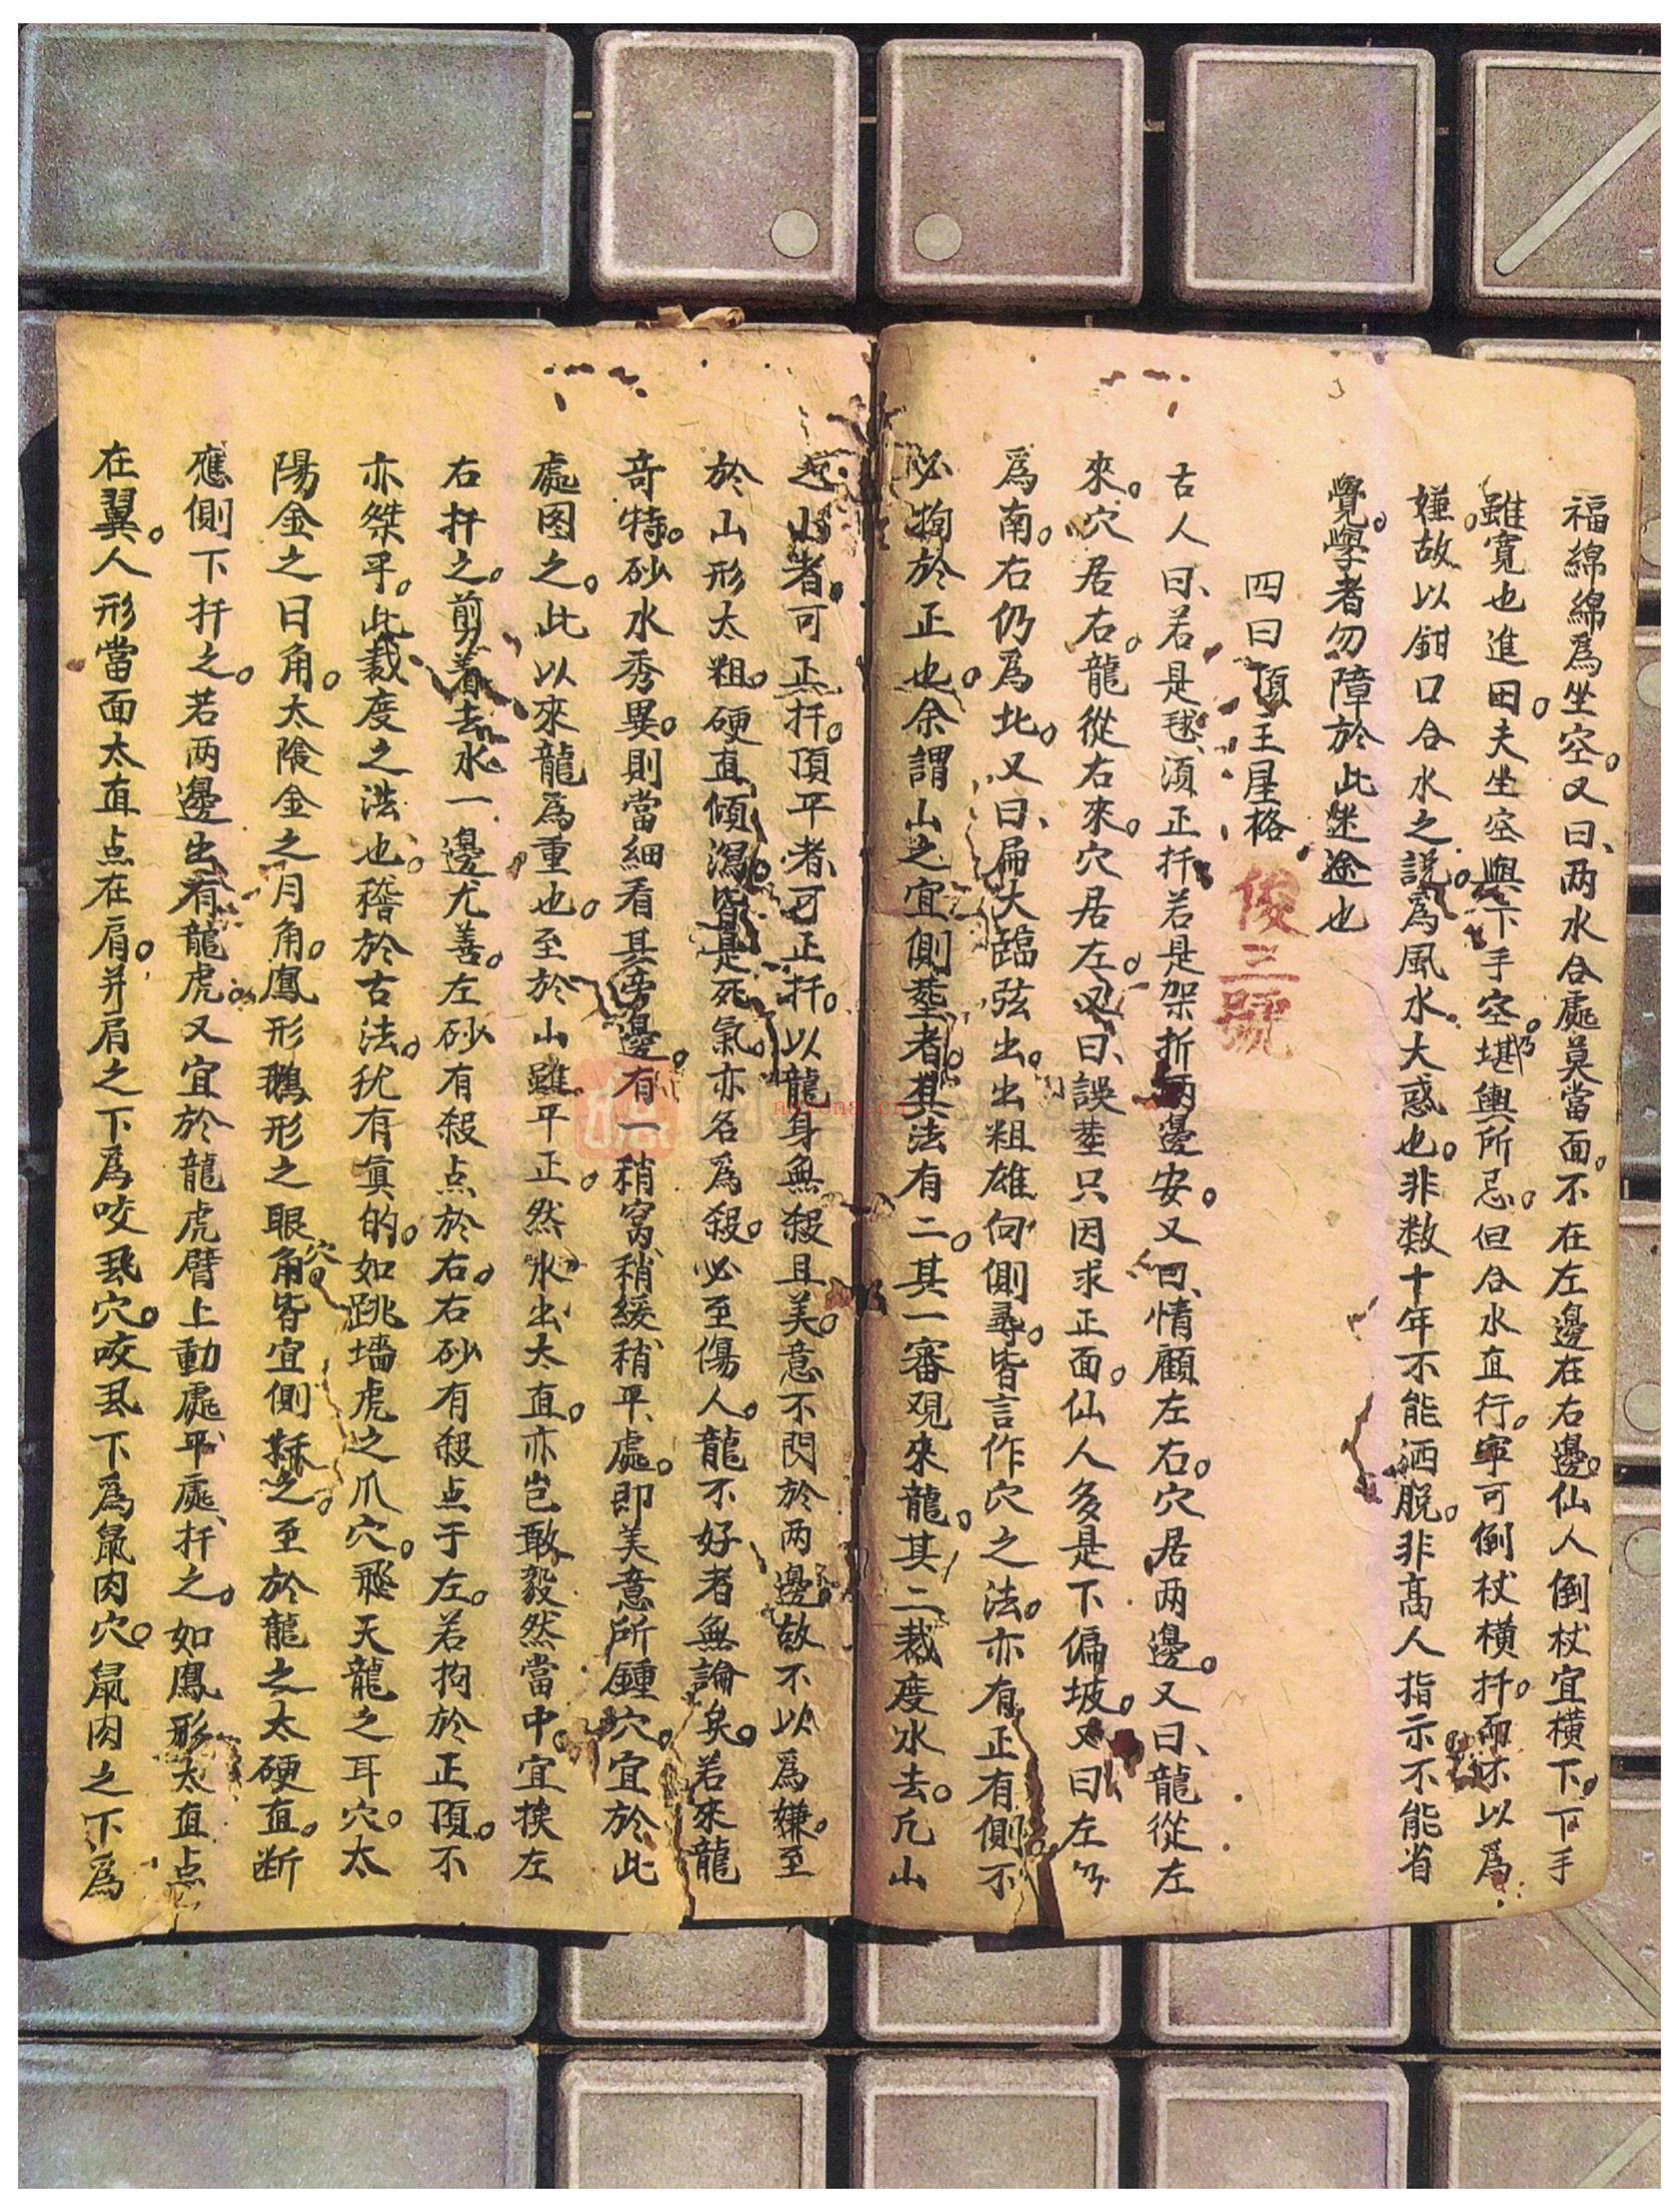 福綿綿爲坐空。又曰、两水合處莫當面。不在左邊在右邊。仙人倒杖宜橫下。下手
雖寬也進田。夫坐空與下手空。乃堪輿所忌。但合水直行。寧可倒杖橫扦。而不以爲
嫌。故以鉗口合水之説。爲風水大惑也。非数十年不能洒脱。非高人指示不能省
覺。學者勿障於此迷途也
四曰頂主星格
俊三號
古人曰、若是毬、須正扦若是架折兩邊安。又曰、情顧左右。穴居两邊。又曰、龍從左
來。穴居右。龍從右來。穴居左。又曰、誤塟只因求正面。仙人多是下偏坡。又曰左乃
爲南。右仍爲北。又曰、扁大臨弦出。出粗雄向側尋。皆言作穴之法。亦有正有側。不
必拘於正也。余謂山之宜側塟者。其法有二。其一審观來龍。其二裁度水去。凢山
逆山者。可正扦。頂平者、可正扦。以龍身無殺且美。意不閃於两邊。故不以爲嫌。至
於山形太粗。硬直、傾瀉皆是死氣。亦名爲殺。必至傷人。龍不好者無論矣。若來龍
奇特。砂水秀異。則當細看其旁邊。有一稍窩、稍緩、稍平、處。即美意所鍾。穴宜於此
處图之。此以來龍爲重也。至於山雖平正。然水出太直。亦岂敢毅然當中。宜挨左
右扦之。剪着去水一邊尤善。左砂有殺点於右。右砂有殺点于左。若拘於正頂。不
亦桀乎。此裁度之法也。稽於古法。犹有眞的。如跳墻虎之爪穴。飛天龍之耳穴。太
陽金之日角。太陰金之月角。鳳形鵝形之眼角穴皆宜側扦之。至於龍之太硬直。断
應側下扦之。若两邊出有龍虎。又宜於龍虎臂上動處、平處、扦之。如鳳形太直点
在翼。人形當面太直点在肩。并肩之下爲咬虱穴。咬虱下爲鼠肉穴。鼠肉之下爲